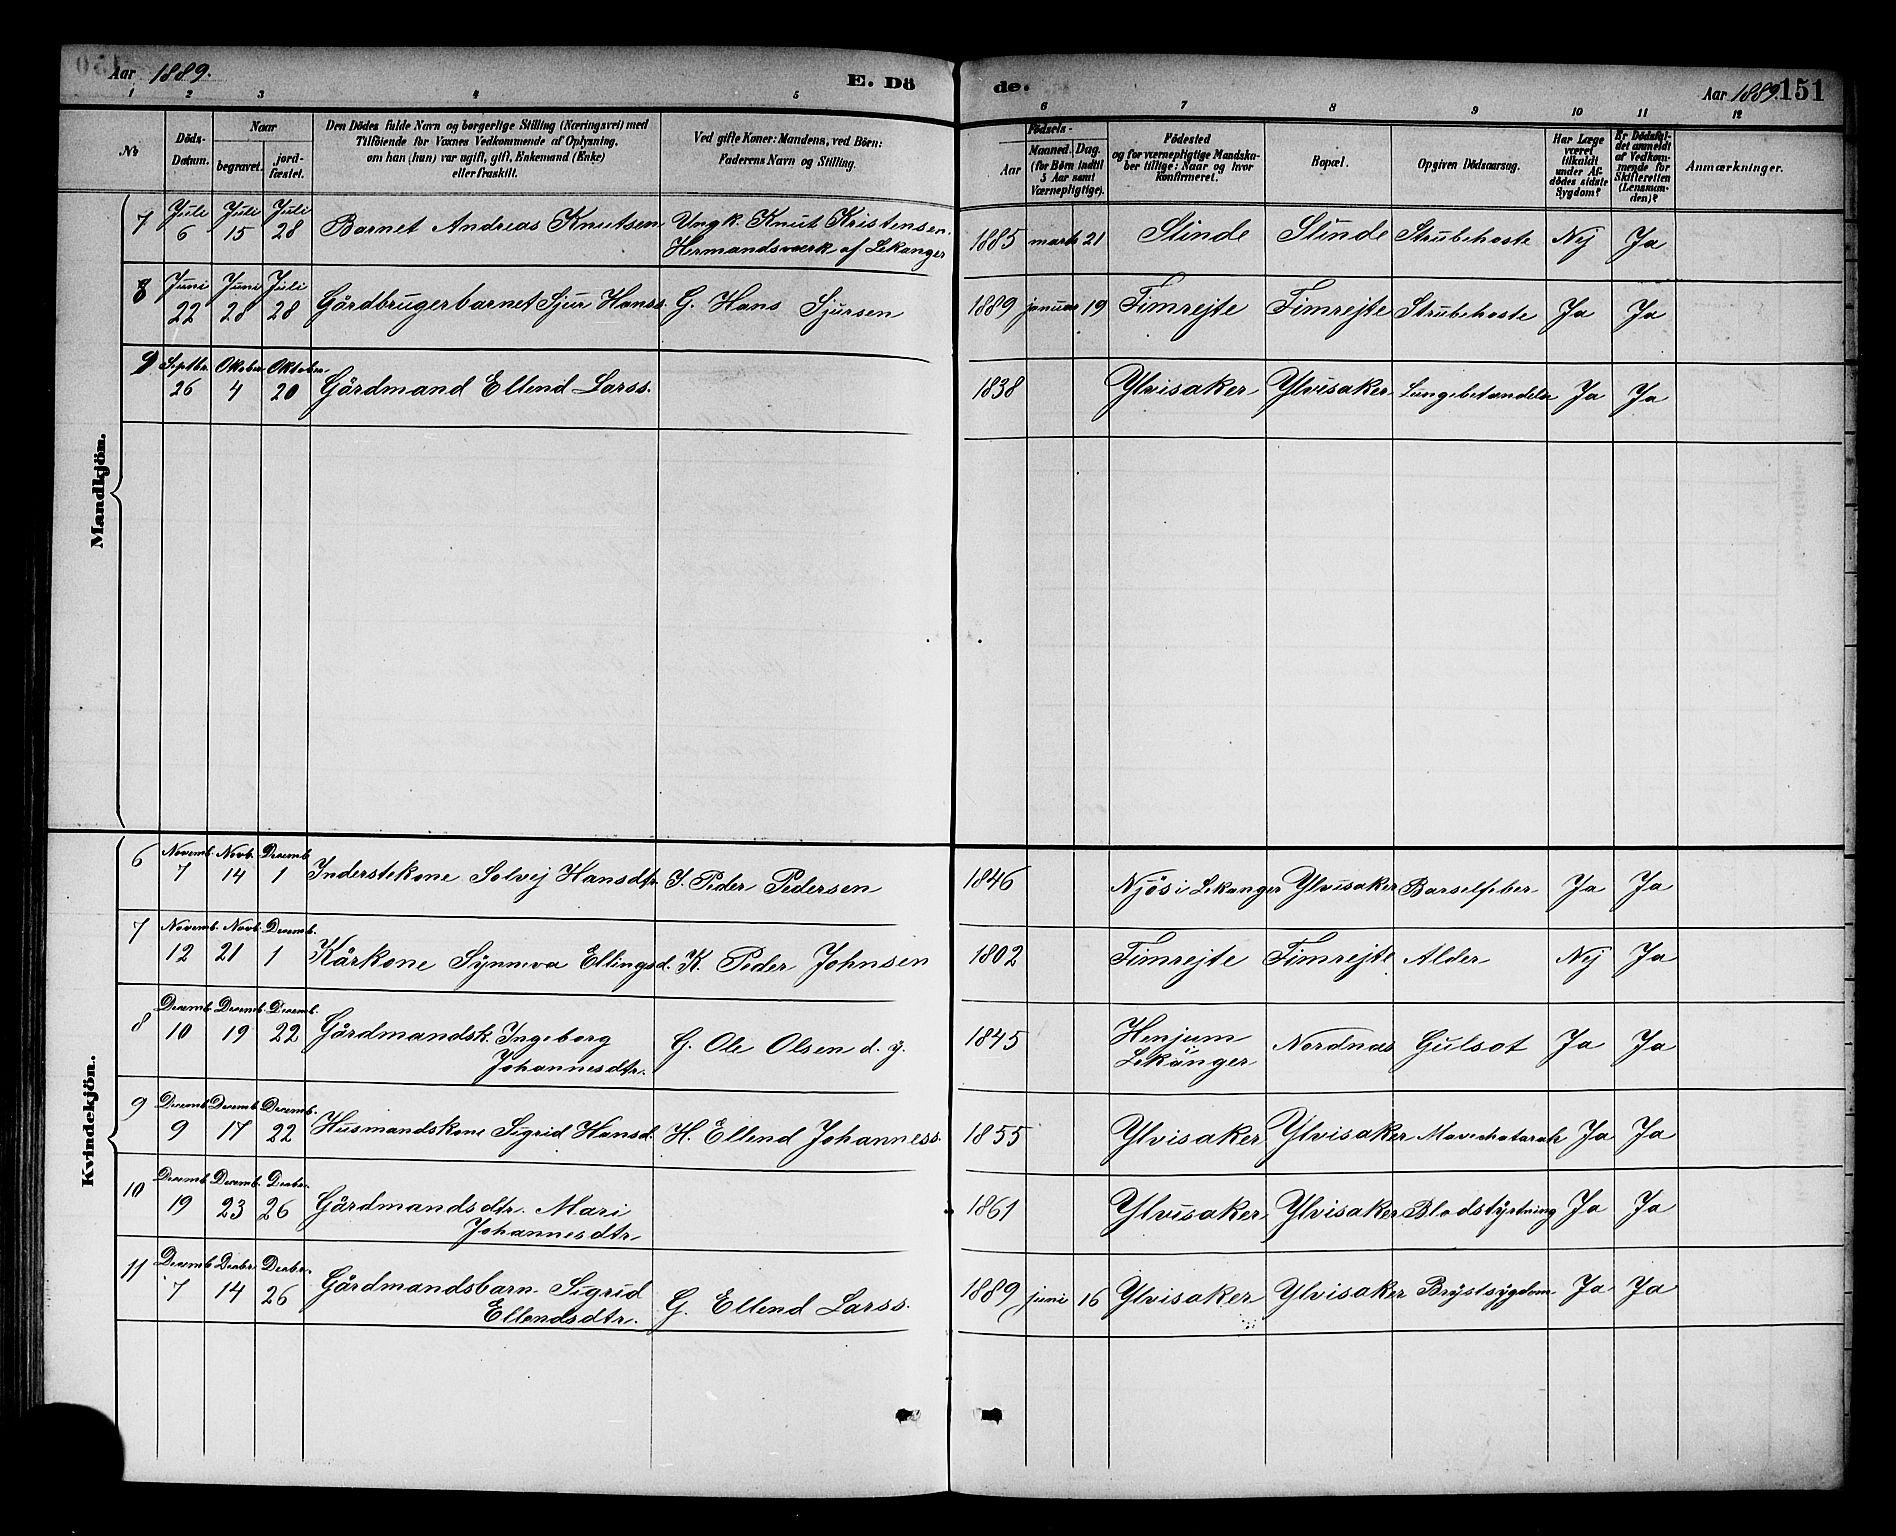 Aar 1889. E. Dö de. Aar 1889. 151
1 2 3 4 5 6 7 8 9 10 11 12
No
Döds-Datum.
Naar
begravet. jordfæstet.
Den Dödes fulde Navn og borgerlige Stilling (Næringsvei) med
Tilföiende for Voxnes Vedkommende af Oplysning,
om han (hun) var ugift, gift, Enkemand (Enke)
eller fraskilt.
Ved gifte Koner: Mandens, ved Börn:
Faderens Navn og Stilling.
Födsels-
Aar Maaned. Dag.
(for Börn indtil
5 Aar samt
Værnepligtige).
Födested
og for værnepligtige Mandska-
ber tillige: Naar og hvor
konfirmeret.
Bopæl.
Opgiven Dödsaarsag.
Har Læge
været
tilkaldt
under Af-
dödes sidste
Sygdom?
Er Dödsfal-
det anmeldt
af Vedkom-
mende for
Skifteretten
(Lensman-
den)?
Anmærkninger.
Mandkjön.
7 Juli 6 Juli 15 Juli 28 Barnet Andreas Knutsen Ungk. Knut Kristensen, 1885 marts 21 Slinde Slinde Strubehoste Nej Ja
Hermandsværk af Lekanger
8 Juni 22 Juni 28 Juli 28 Gårdbrugerbarnet Sjur Hanss. G. Hans Sjursen 1889 januar 19 Fimrejte Fimrejte Strubehoste Ja Ja
9 Septbr. 26 Oktober 4 Oktober 20 Gårdmand Ellend Larss. 1838 Ylvisaker Ylvisaker Lungebetændelse Ja Ja
Kvindekjön.
6 Novemb. 7 Novb. 14 Decemb. 1 Inderstekone Solvej Hansdtr. I. Peder Pedersen 1846 Njøs i Lekanger Ylvisaker Barselfeber Ja Ja
7 Novemb. 12 Novb. 21 Decemb. 1 Kårkone Synneva Ellingsd. K. Peder Johnsen 1802 Fimrejte Fimrejte Alder Nej Ja
8 Decemb. 10 Decemb. 19 Decemb. 22 Gårdmandsk. Ingeborg G. Ole Olsen d. y. 1845 Henjum Nordnæs Gulsot Ja Ja
Johannesdtr. Lekanger
9 Decemb. 9 Decemb. 17 Decemb. 22 Husmandskone Sigrid Hansd. H. Ellend Johanness. 1855 Ylvisaker Ylvisaker Mavekatarrh Ja Ja
10 Decemb. 19 Decemb. 23 Decbr. 26 Gårdmandsdtr. Mari 1861 Ylvisaker Ylvisaker Blodstyrtning Ja Ja
Johannesdtr.
11 Decemb. 7 Decbr. 14 Decbr. 26 Gårdmandsbarn Sigrid G. Ellend Larss. 1889 juni 16 Ylvisaker Ylvisaker Brystsygdom Ja Ja
Ellendsdtr.